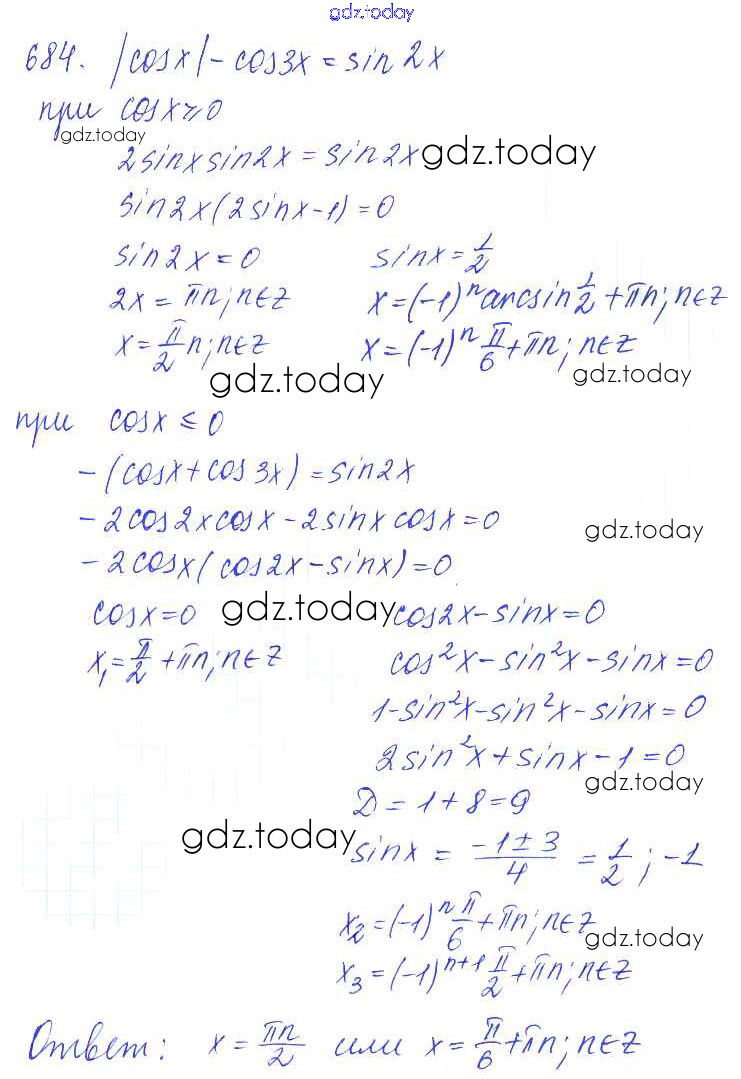 gdz.today
684. |cosx| - cos3x = sin2x
при cosx ≥ 0
gdz.today
2sinxsin2x = sin2x gdz.today
sin2x(2sinx-1) = 0
sin2x = 0 sinx = 1/2
2x = πn; n∈Z x = (-1)ⁿ arcsin 1/2 + πn; n∈Z
x = π/2 n; n∈Z x = (-1)ⁿ π/6 + πn; n∈Z
gdz.today gdz.today
при cosx ≤ 0
-(cosx + cos3x) = sin2x
-2cos2xcosx - 2sinxcosx = 0
gdz.today
-2cosx(cos2x - sinx) = 0
cosx = 0 gdz.today cos2x - sinx = 0
x₁ = π/2 + πn; n∈Z cos²x - sin²x - sinx = 0
1 - sin²x - sin²x - sinx = 0
2sin²x + sinx - 1 = 0
gdz.today
D = 1 + 8 = 9
gdz.today sinx = (-1 ± 3)/4 = 1/2; -1
x₂ = (-1)ⁿ π/6 + πn; n∈Z
gdz.today
x₃ = (-1)ⁿ⁺¹ π/2 + πn; n∈Z
Ответ: x = πn/2 или x = π/6 + πn; n∈Z